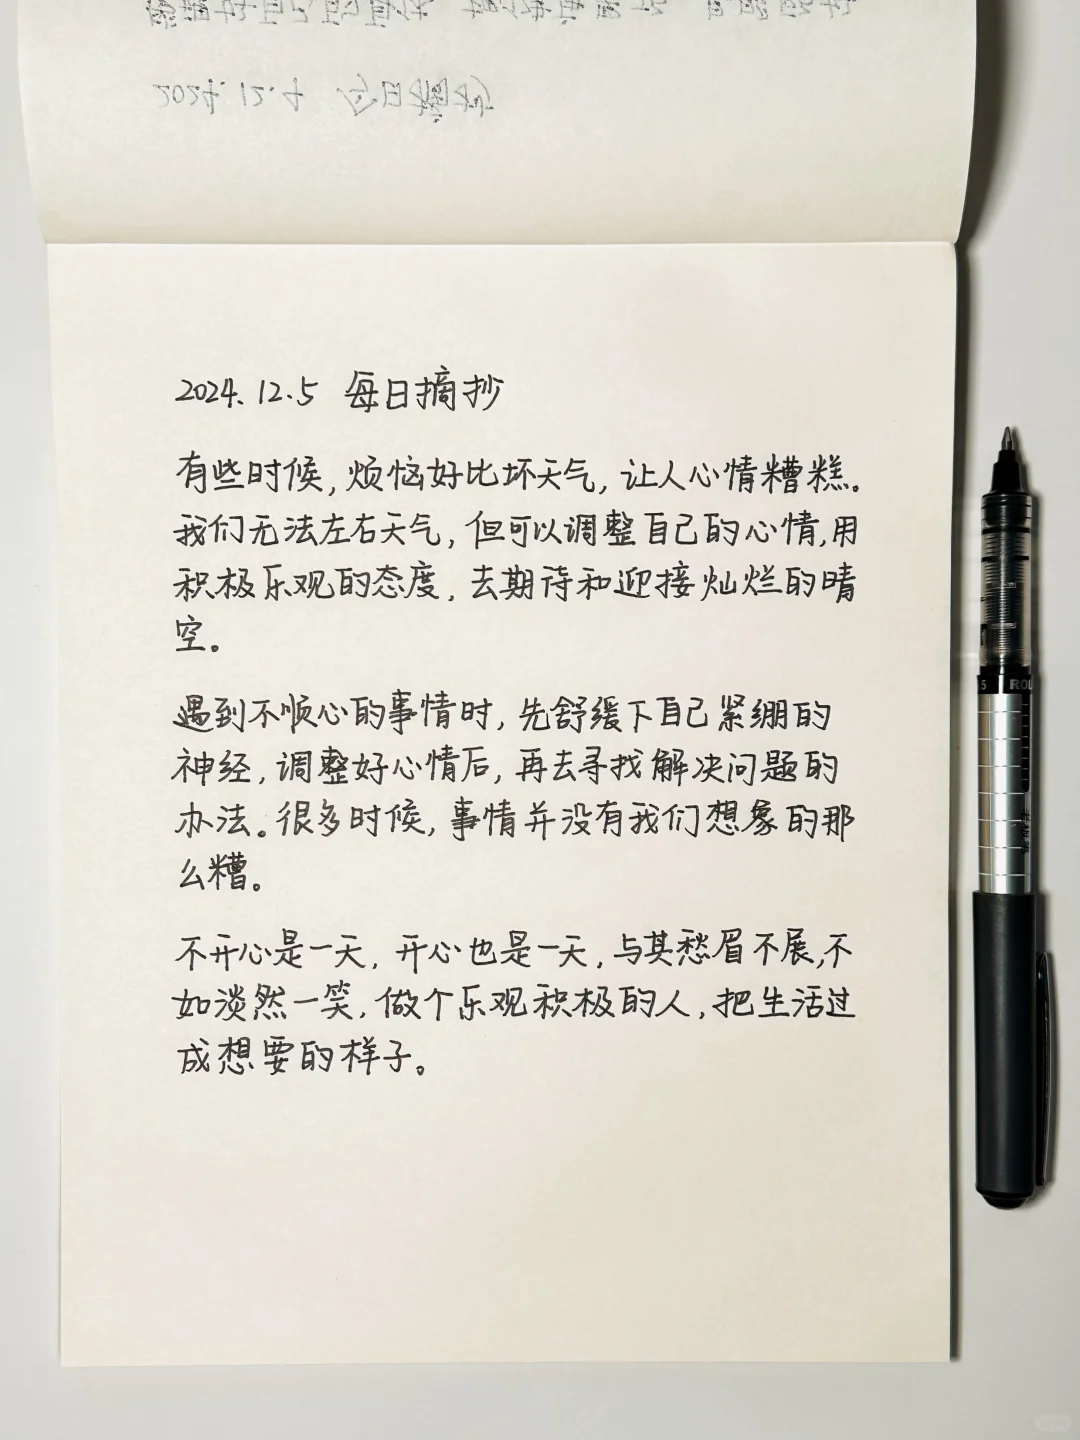 2024.12.4
2024.12.5 每日摘抄
有些时候,烦恼好比坏天气,让人心情糟糕。
我们无法左右天气,但可以调整自己的心情,用
积极乐观的态度,去期待和迎接灿烂的晴
空。
遇到不顺心的事情时,先舒缓下自己紧绷的
神经,调整好心情后,再去寻找解决问题的
办法。很多时候,事情并没有我们想象的那
么糟。
不开心是一天,开心也是一天,与其愁眉不展,不
如淡然一笑,做个乐观积极的人,把生活过
成想要的样子。
.5 ROL